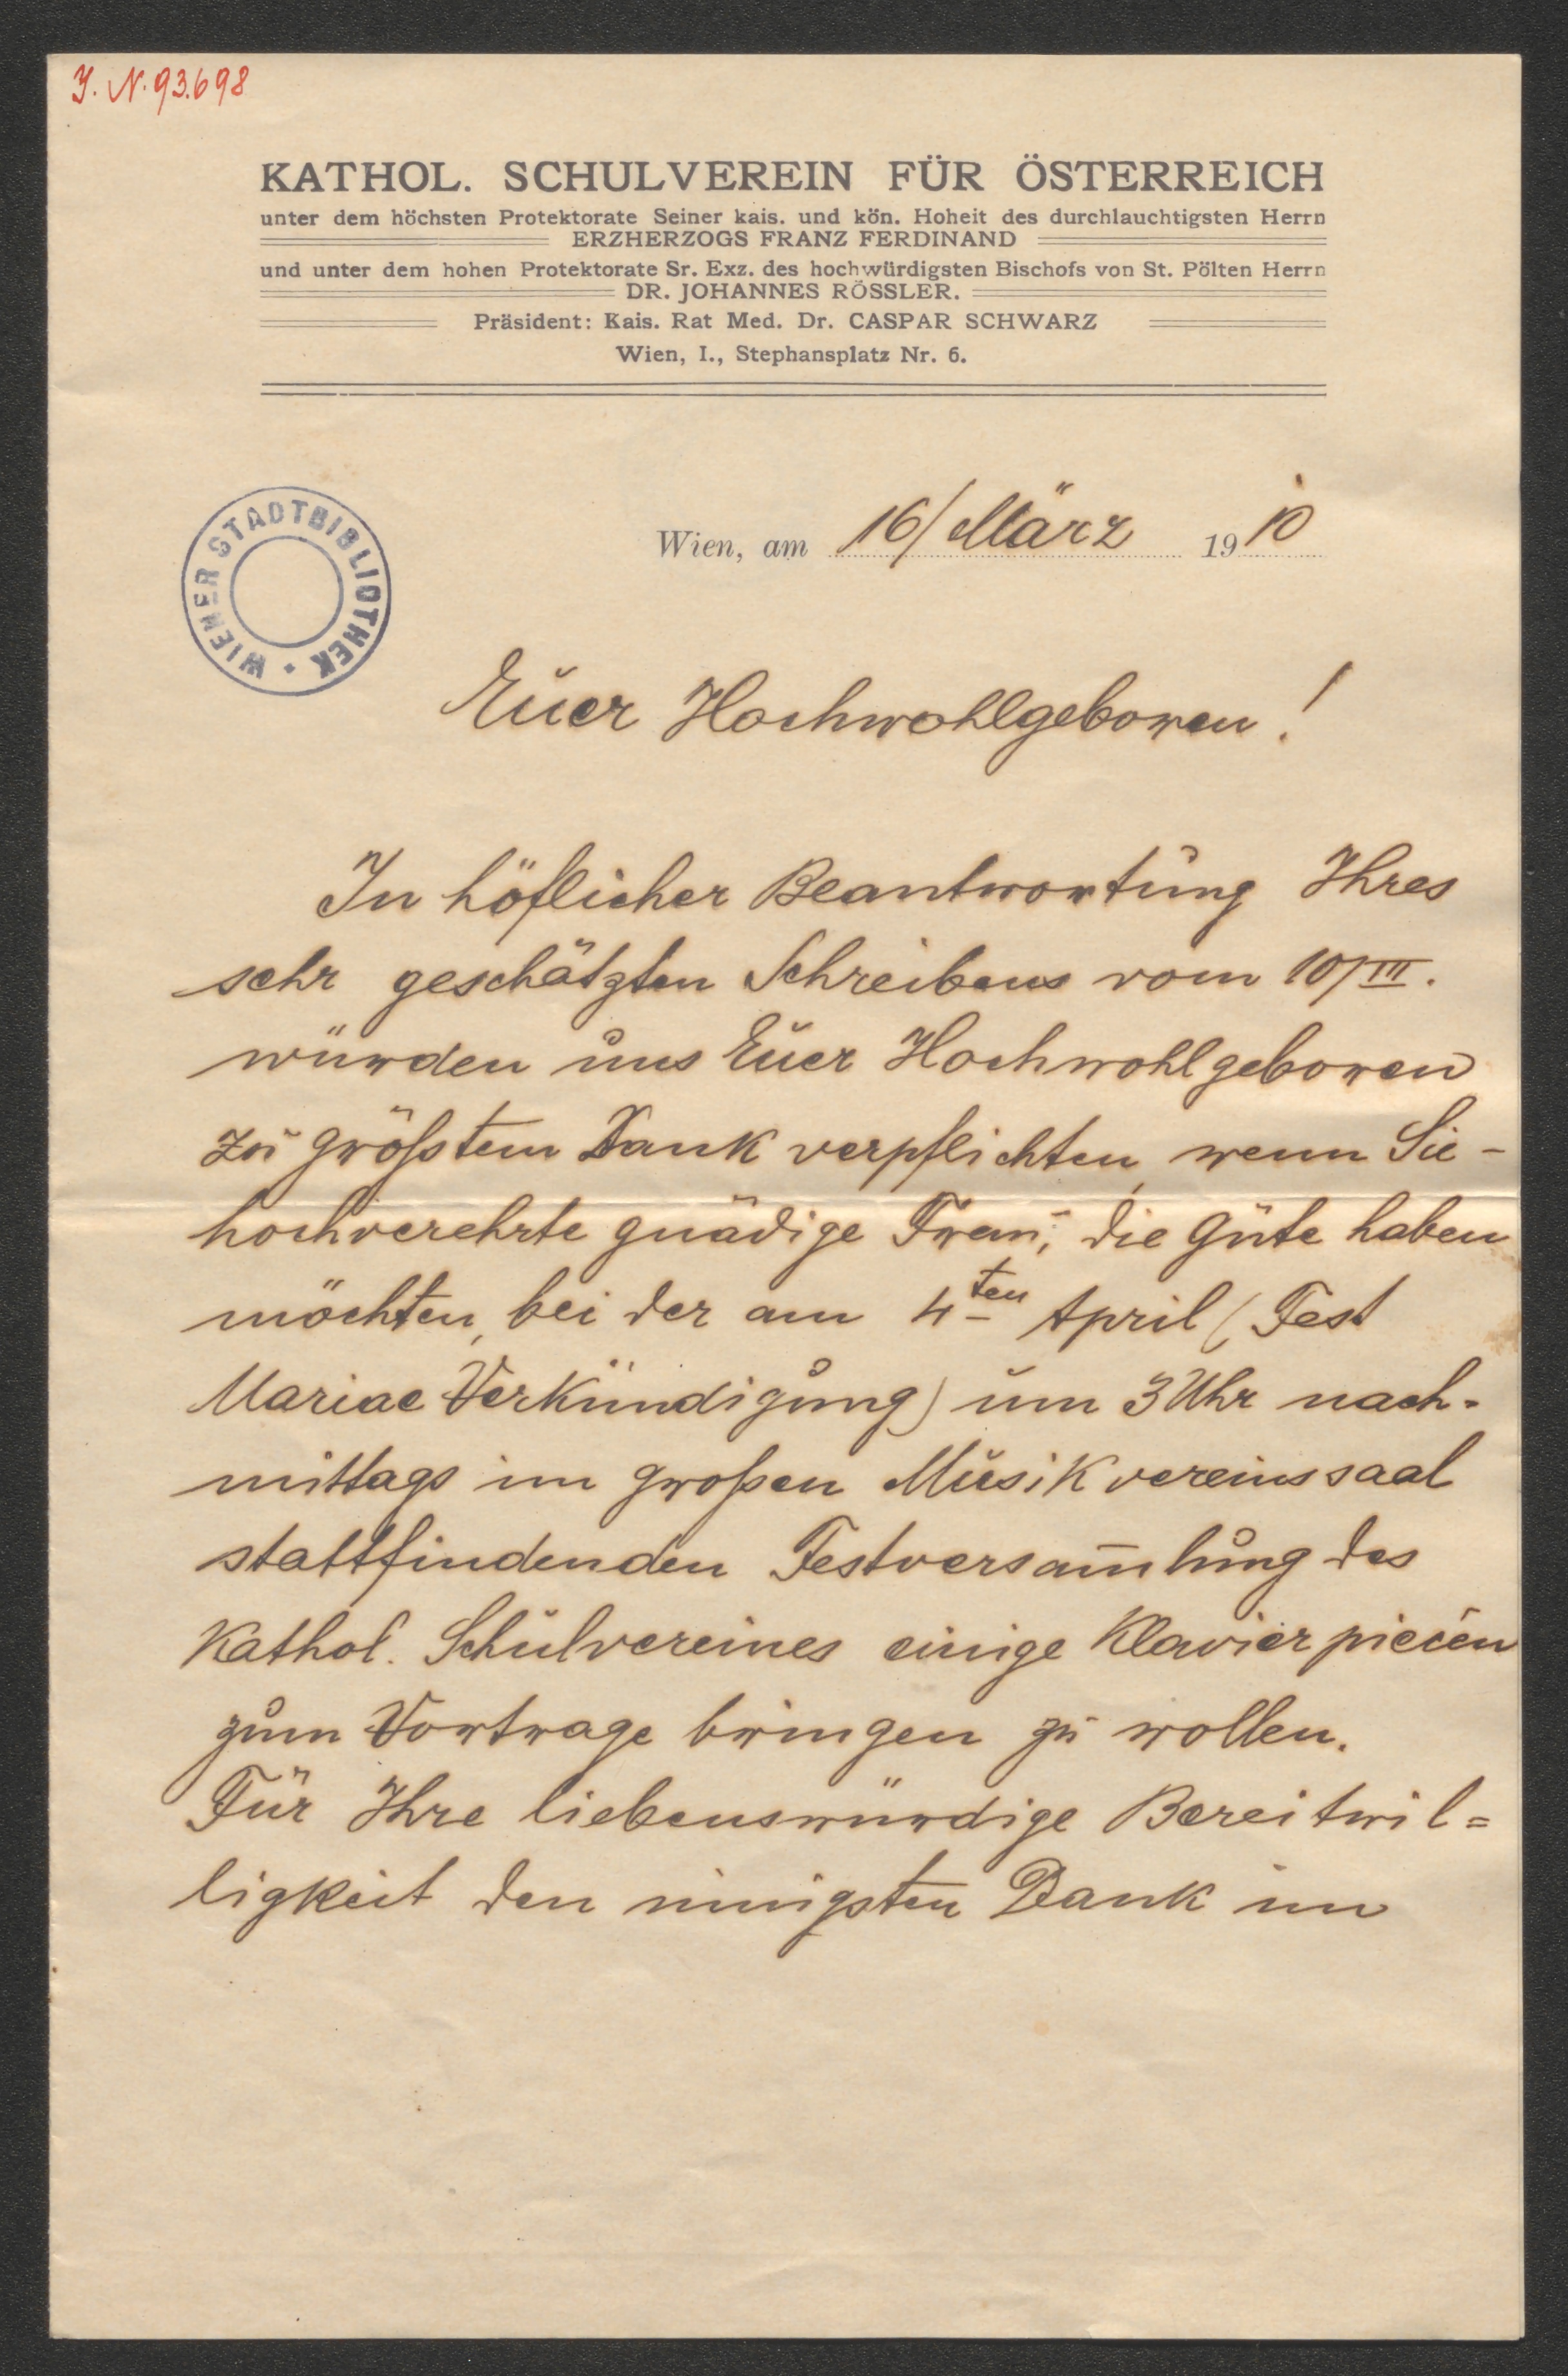 J. N. 93.698
KATHOL. SCHULVEREIN FÜR ÖSTERREICH
unter dem höchsten Protektorate Seiner kais. und kön. Hoheit des durchlauchtigsten Herrn
ERZHERZOGS FRANZ FERDINAND
und unter dem hohen Protektorate Sr. Exz. des hochwürdigsten Bischofs von St. Pölten Herrn
DR. JOHANNES RÖSSLER.
Präsident: Kais. Rat Med. Dr. CASPAR SCHWARZ
Wien, I., Stephansplatz Nr. 6.
WIENER STADTBIBLIOTHEK
Wien, am 16/ März 1910
Euer Hochwohlgeboren!
In höflicher Beantwortung Ihres
sehr geschätzten Schreibens vom 10/III.
würden uns Euer Hochwohlgeboren
zu größtem Dank verpflichten, wenn Sie -
hochverehrte gnädige Frau, die Güte haben
möchten, bei der am 4ten April (Fest
Mariae Verkündigung) um 3 Uhr nach-
mittags im großen Musikvereinssaal
stattfindenden Festversam̅lung des
Kathol. Schulvereines einige Klavierpiecen
zum Vortrage bringen zu wollen.
Für Ihre liebenswürdige Bereitwil=
ligkeit den innigsten Dank im